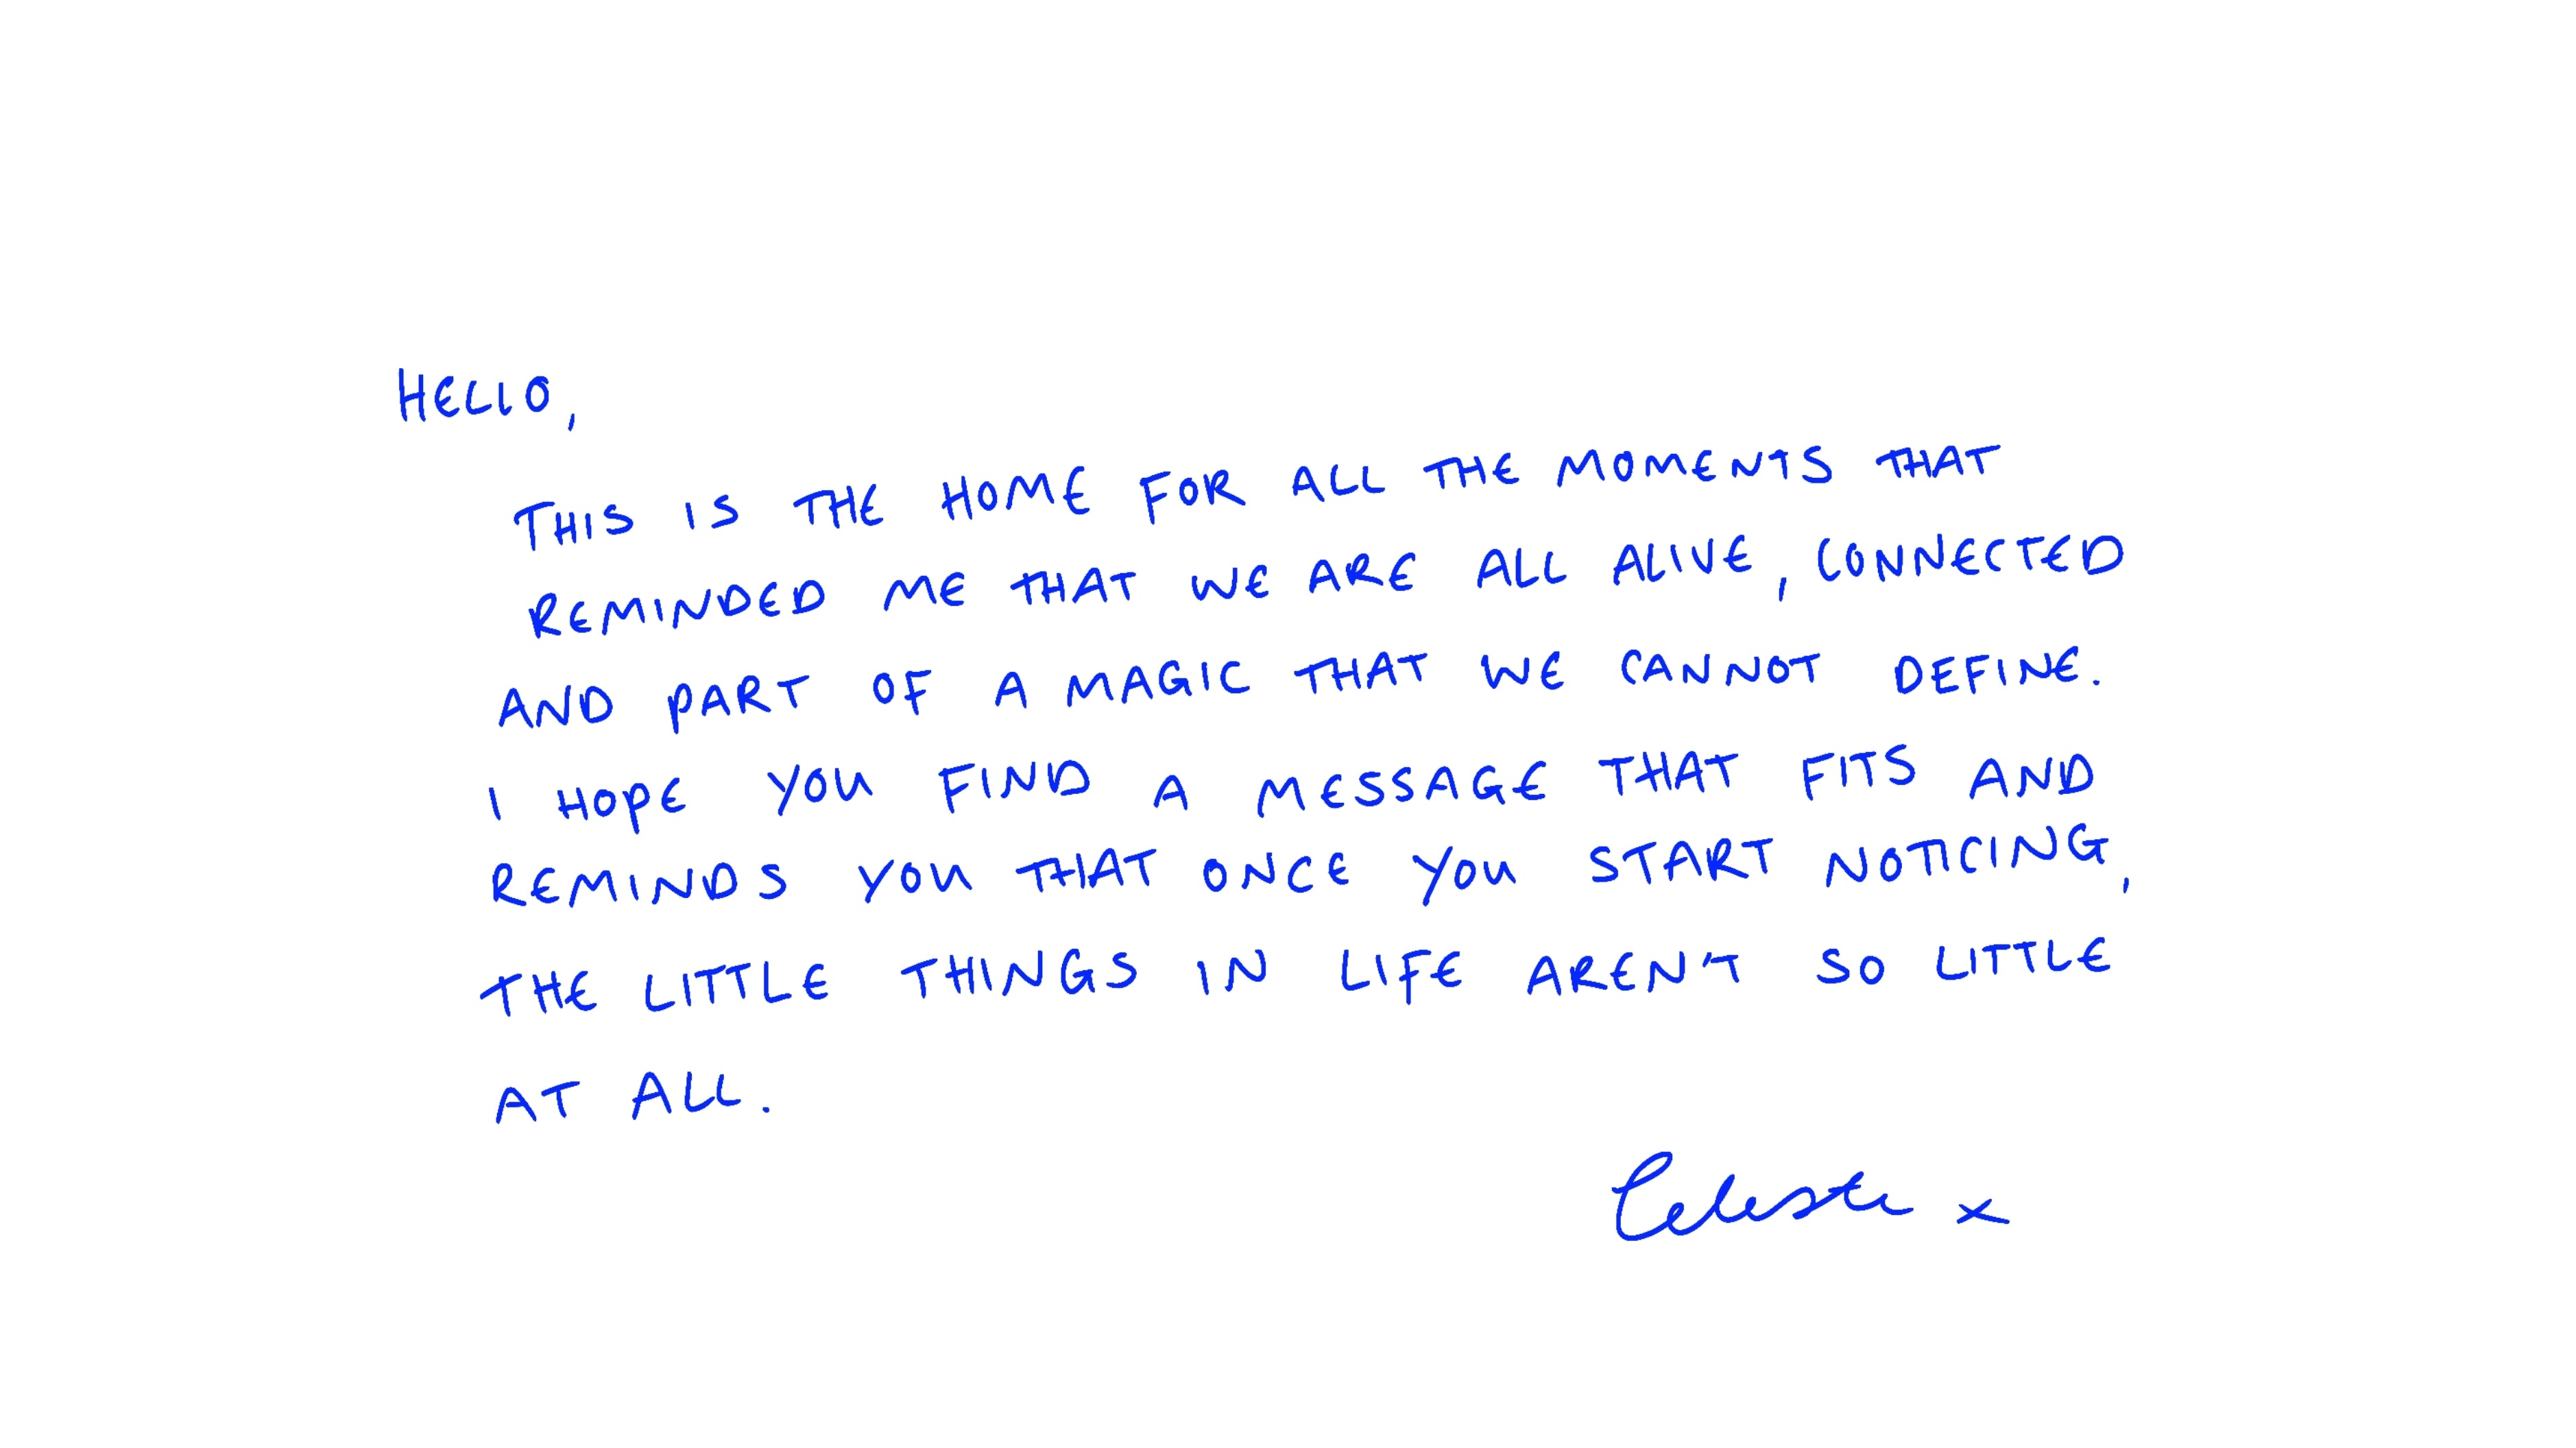 HELLO,
THIS IS THE HOME FOR ALL THE MOMENTS THAT
REMINDED ME THAT WE ARE ALL ALIVE, CONNECTED
AND PART OF A MAGIC THAT WE CANNOT DEFINE.
I HOPE YOU FIND A MESSAGE THAT FITS AND
REMINDS YOU THAT ONCE YOU START NOTICING,
THE LITTLE THINGS IN LIFE AREN'T SO LITTLE
AT ALL.
Celeste x